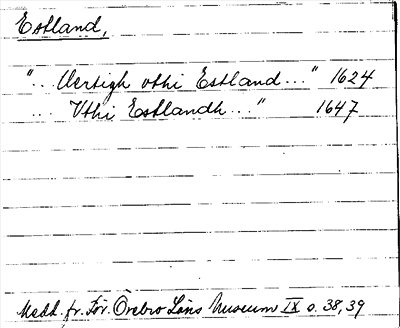 Estland,
"... Wertigh vthi Estland..." 1624
... Vthi Estlandh..." 1647
Medd. fr. För. Örebro Läns Museum IX s. 38, 39